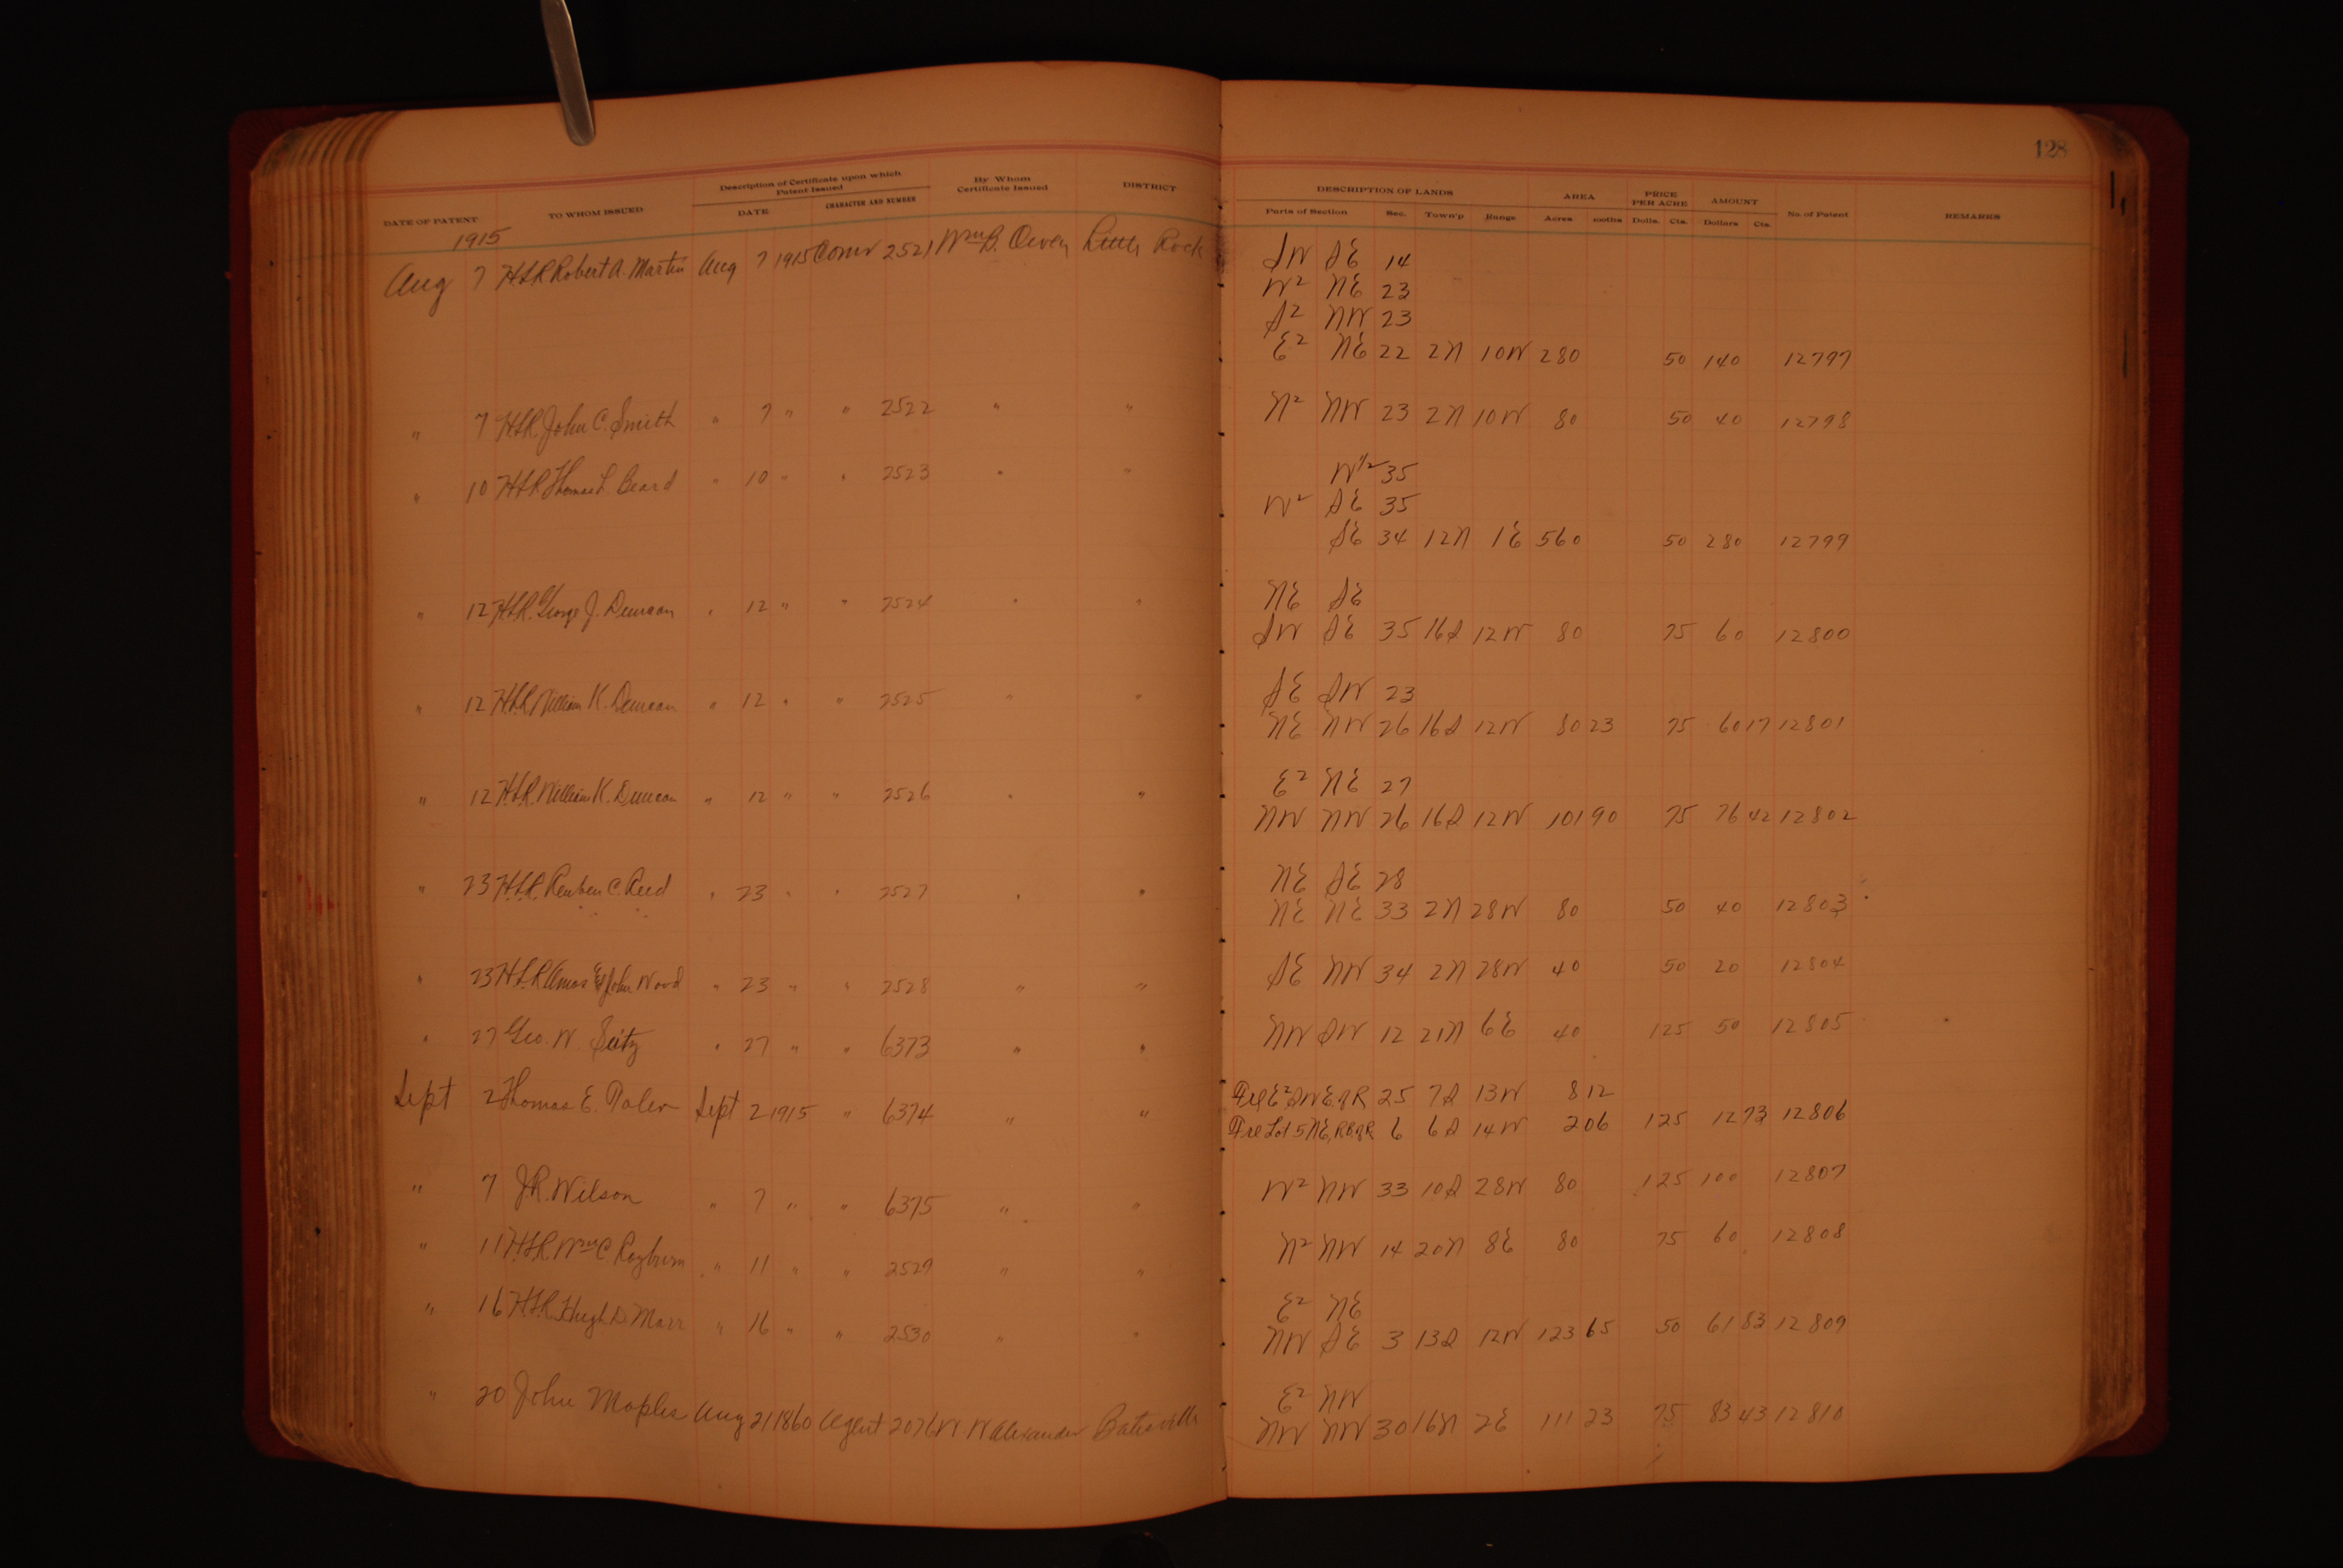 128
DATE OF PATENT TO WHOM ISSUED Description of Certificate upon which Patent Issued DATE CHARACTER AND NUMBER By Whom Certificate Issued DISTRICT DESCRIPTION OF LANDS Parts of Section Sec. Town'p Range AREA Acres PRICE PER ACRE Dolls. Cts. AMOUNT Dollars Cts. No. of Patent REMARKS
1915
Aug 7 H.S.R. Robert A. Martin Aug 7 1915 Comr 2521 Wm B. Owen Little Rock SW SE 14
W2 NE 23
S2 NW 23
E2 NE 22 2N 10W 280 50 140 12797
" 7 H.S.R. John C. Smith " 7 " " 2522 " " N2 NW 23 2N 10W 80 50 40 12798
" 10 H.S.R. Thomas L. Beard " 10 " " 2523 " " W1/2 35
W2 SE 35
SE 34 12N 1E 560 50 280 12799
" 12 H.S.R. George J. Duncan " 12 " " 2524 " " NE SE
SW SE 35 16S 12W 80 75 60 12800
" 12 H.S.R. William K. Duncan " 12 " " 2525 " " SE SW 23
NE NW 26 16S 12W 80 23 75 60 17 12801
" 12 H.S.R. William K. Duncan " 12 " " 2526 " " E2 NE 27
NW NW 26 16S 12W 101 90 75 76 42 12802
" 23 H.S.R. Reuben C. Reed " 23 " " 2527 " " NE SE 28
NE NE 33 2N 28W 80 50 40 12803
" 23 H.S.R. Amos & John Wood " 23 " " 2528 " " SE NW 34 2N 28W 40 50 20 12804
" 27 Geo. W. Seitz " 27 " " 6373 " " NW SW 12 21N 6E 40 125 50 12805
Sept 2 Thomas E. Sept 2 1915 " 6374 " " Frl E2 SW E. of R 25 7S 13W 8 12
Frl Lot 5 NE, 6 6S 14W 206 125 12 73 12806
" 7 J.R. Wilson " 7 " " 6375 " " W2 NW 33 10S 28W 80 125 100 12807
" 11 H.S.R. Wm C. Rayburn " 11 " " 2529 " " N2 NW 14 20N 8E 80 75 60 12808
" 16 H.S.R. Hugh D. Marr " 16 " " 2530 " " E2 NE
NW SE 3 13S 12W 123 65 50 61 83 12809
" 20 John Maples Aug 21 1860 Agent 2076 W W Alexander Batesville E2 NW
NW NW 30 16N 2E 111 23 75 83 43 12810